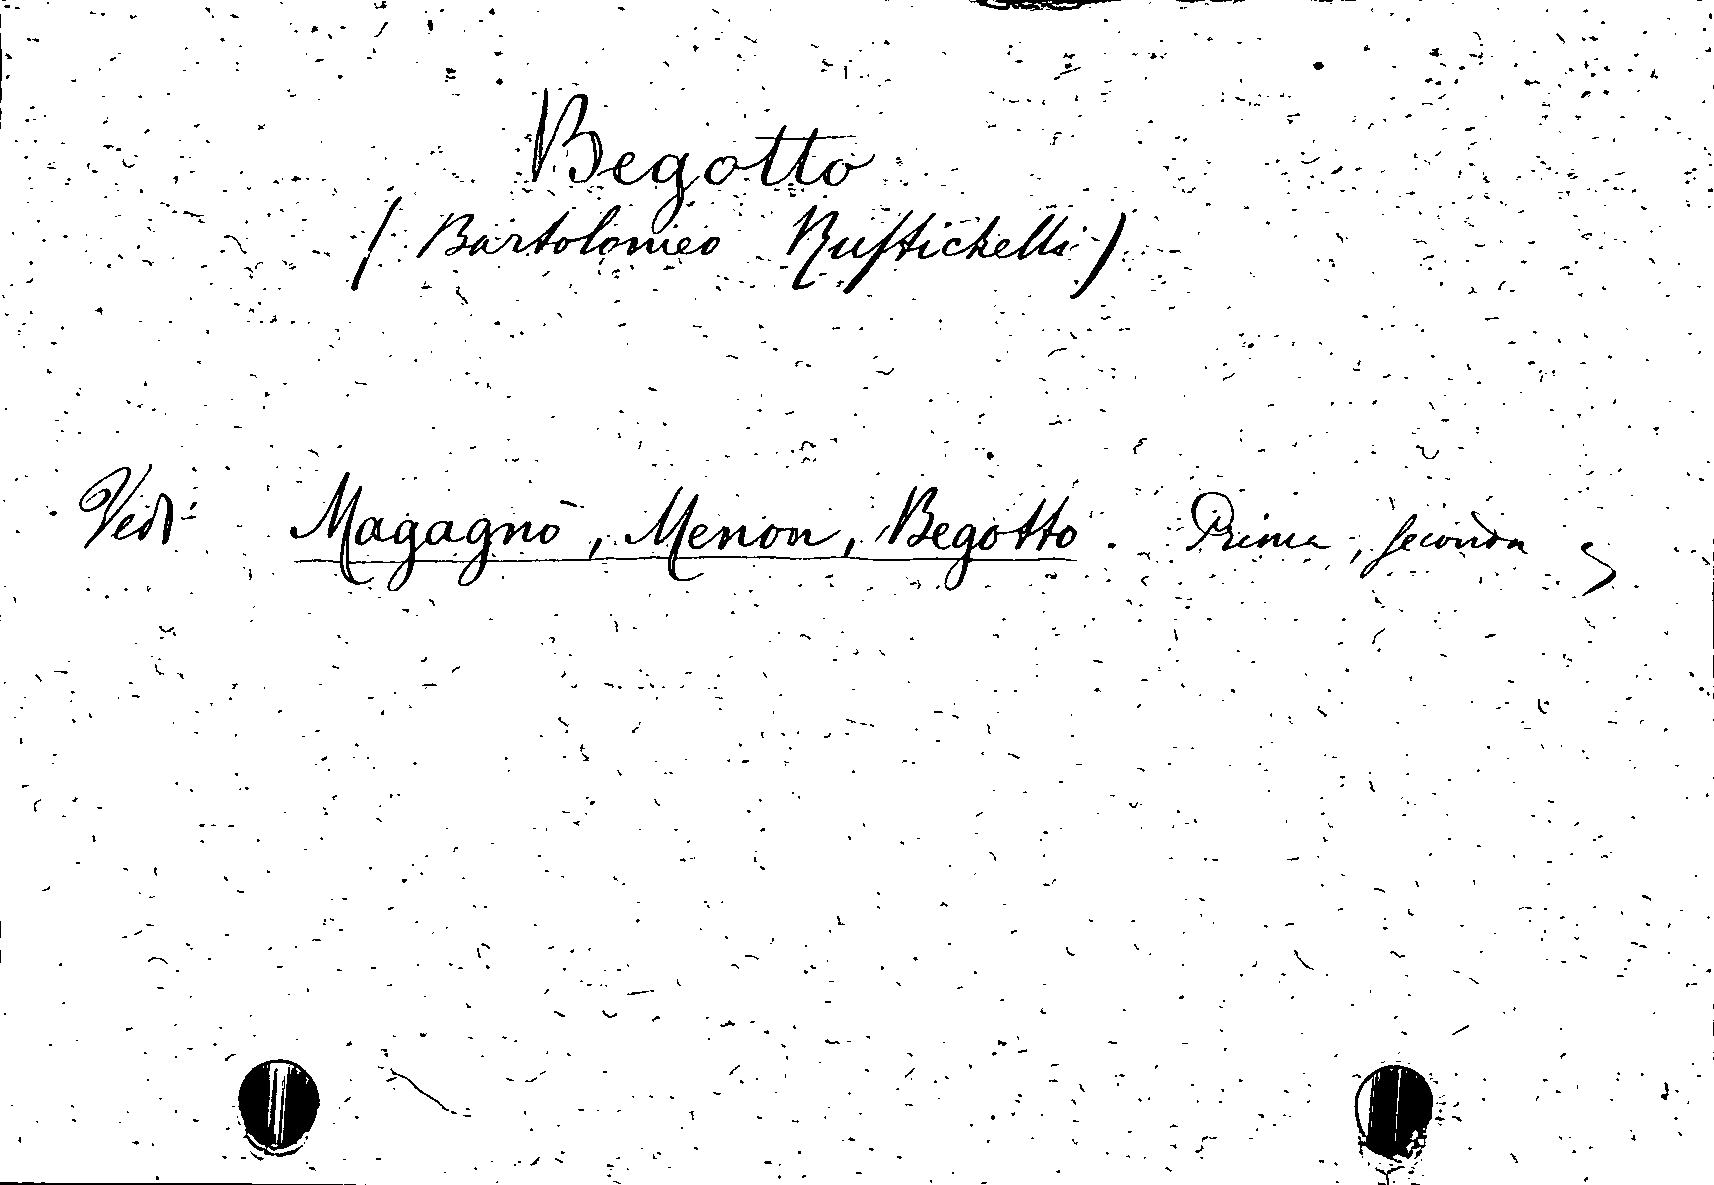 Begotto
( Bartolomeo Rustichelli )
Vedi Magagnò, Menon, Begotto. Prima, seconda